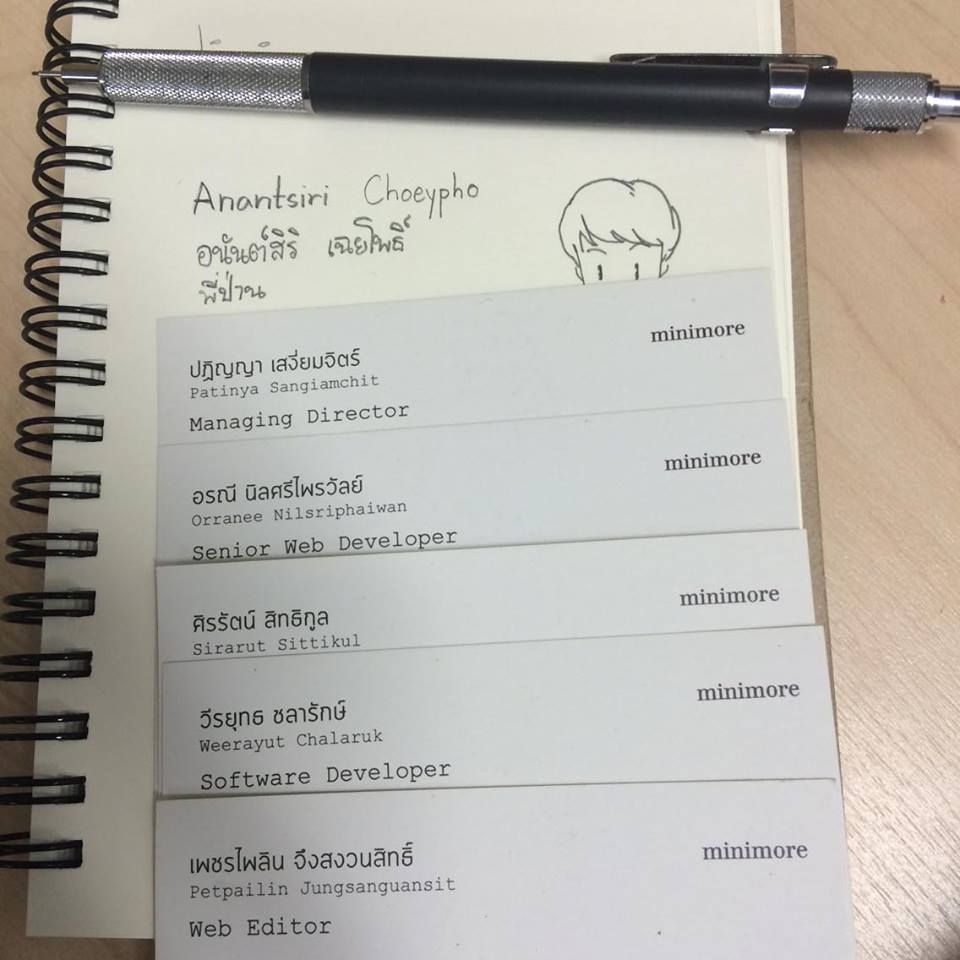 Anantsiri Choeypho
อนันต์สิริ เฉยโพธิ์
พี่ป่าน
minimore
ปฏิญญา เสงี่ยมจิตร์
Patinya Sangiamchit
Managing Director
minimore
อรณี นิลศรีไพรวัลย์
Orranee Nilsriphaiwan
Senior Web Developer
minimore
ศิรรัตน์ สิทธิกูล
Sirarut Sittikul
minimore
วีรยุทธ ชลารักษ์
Weerayut Chalaruk
Software Developer
minimore
เพชรไพลิน จึงสงวนสิทธิ์
Petpailin Jungsanguansit
Web Editor